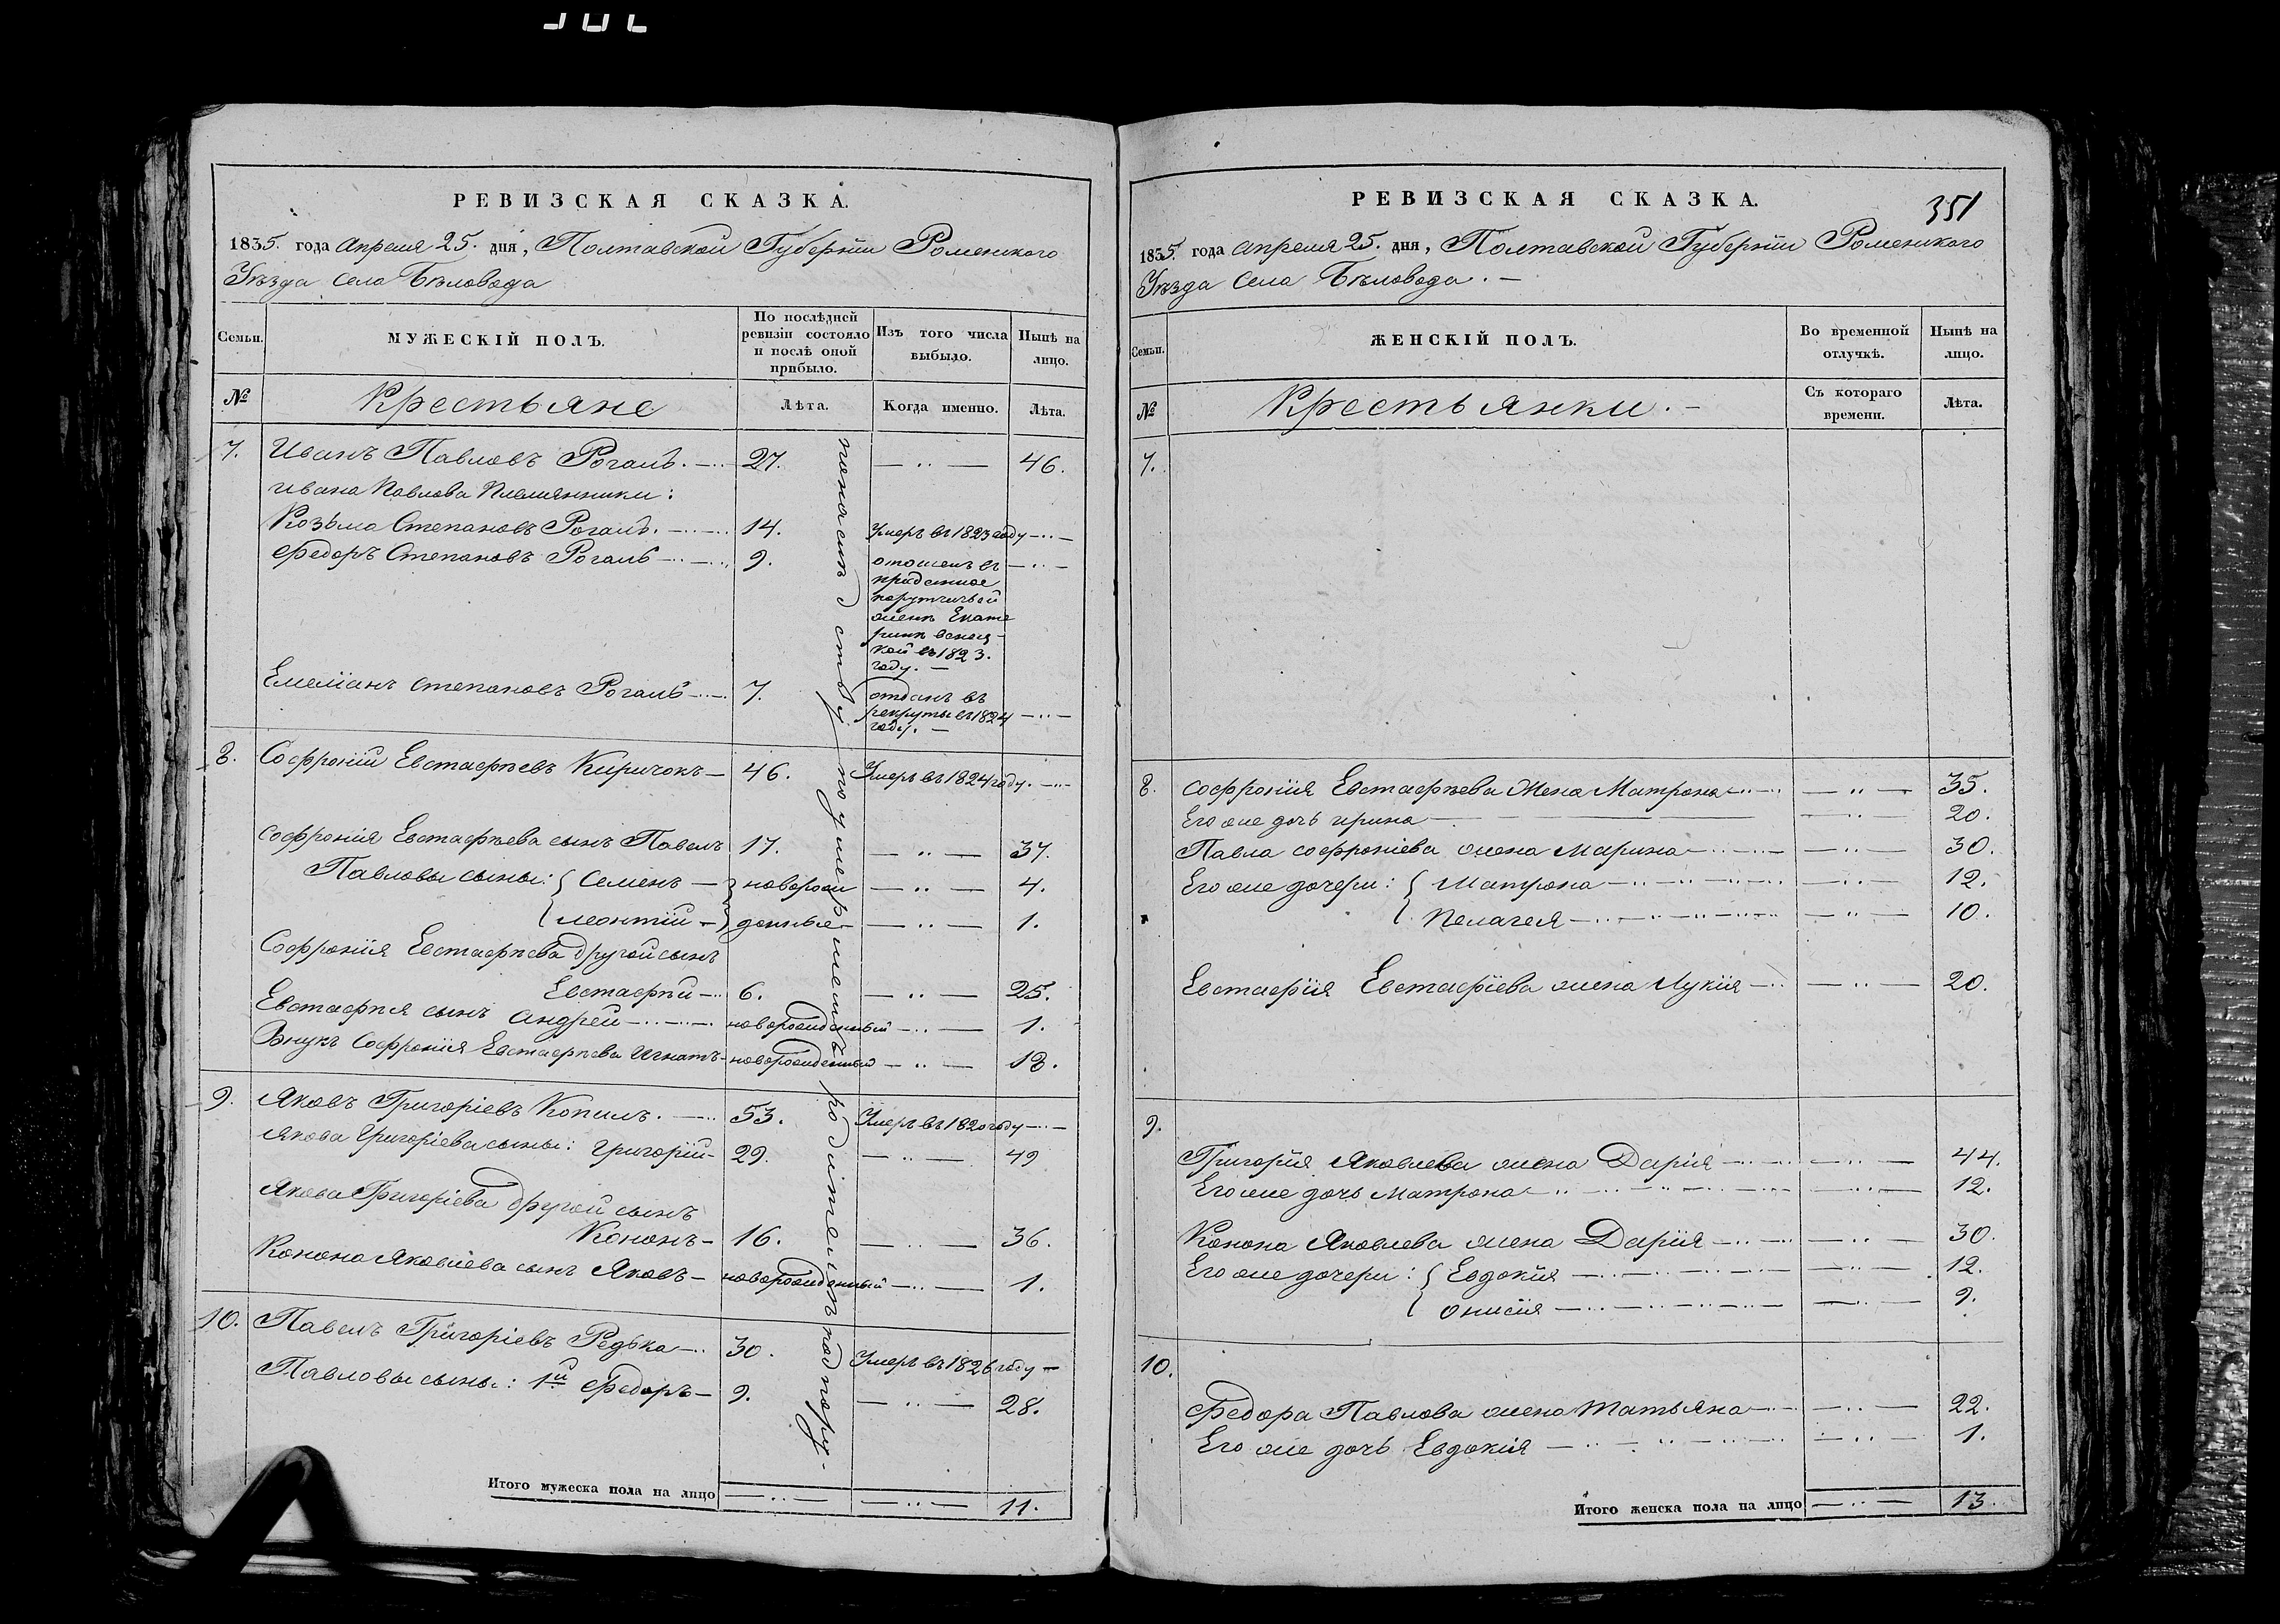 РЕВИЗСКАЯ СКАЗКА.
1835. года Апреля 25. дня, Полтавской Губернїи Роменского
Уѣзда села Бѣловода
Семьи.
МУЖЕСКІЙ ПОЛЪ.
По послѣдней ревизіи состояло и послѣ оной прибыло.
Изъ того числа выбыло.
Нынѣ на лицо.
№
Крестьяне
Лѣта.
Когда именно.
Лѣта.
7. Иванъ Павловъ Рогаль. 27. 46.
Ивана Павлова племянники:
Козьма Степановъ Рогаль. 14. Умеръ въ 1823 году
Федоръ Степановъ Рогаль 9. отошелъ въ
приданное
порутчичьей
женѣ Екате
ринѣ
кой въ 1823.
году.
Емелїанъ Степановъ Рогаль 7. отданъ въ
рекруты въ 1824
году.
8. Софронїй Евстафѣевъ Киричокъ 46. Умеръ въ 1824 году.
Софронїя Евстафѣева сынъ Павелъ 17. 37.
Павловы сыны: Семенъ новорож 4.
Леонтїй денные 1.
Софронїя Евстафѣева другой сынъ
Евстафѣй 6. 25.
Евстафѣя сынъ Андрей новорожденный 1.
Внукъ Софронїя Евстафѣева Игнатъ новорожденный 13.
9. Яковъ Григорїевъ Копилъ. 53. Умеръ въ 1820 году
Якова Григорїева сыны: Григорїй 29. 49
Якова Григорїева другой сынъ
Кононъ 16. 36.
Конона Яковлева сынъ Яковъ новорожденный 1.
10. Павелъ Григорїевъ Редька 30. Умеръ въ 1826 году
Павловы сыны: 1й Федоръ 9. 28.
Итого мужеска пола на лицо 11.
по наслѣдству по умершемъ родителѣ подпору-
РЕВИЗСКАЯ СКАЗКА.
351
1835. года Апреля 25. дня, Полтавской Губернїи Роменского
Уѣзда села Бѣловода.
Семьи.
ЖЕНСКІЙ ПОЛЪ.
Во временной отлучкѣ.
Нынѣ на лицо.
№
Крестьянки.
Съ котораго времени.
Лѣта.
7.
8. Софронїя Евстафѣева Жена Матрона 35.
Его же дочь Ирина 20.
Павла Софронїева жена Марина 30.
Его же дочери: Матрона 12.
Пелагея 10.
Евстафїя Евстафїева жена Лукїя 20.
9.
Григорїя Яковлева жена Дарїя 44.
Его же дочь Матрона 12.
Конона Яковлева жена Дарїя 30.
Его же дочери: Евдокїя 12.
Онисїя 9.
10.
Федора Павлова жена Татьяна 22.
Его же дочь Евдокїя 1.
Итого женска пола на лицо 13.